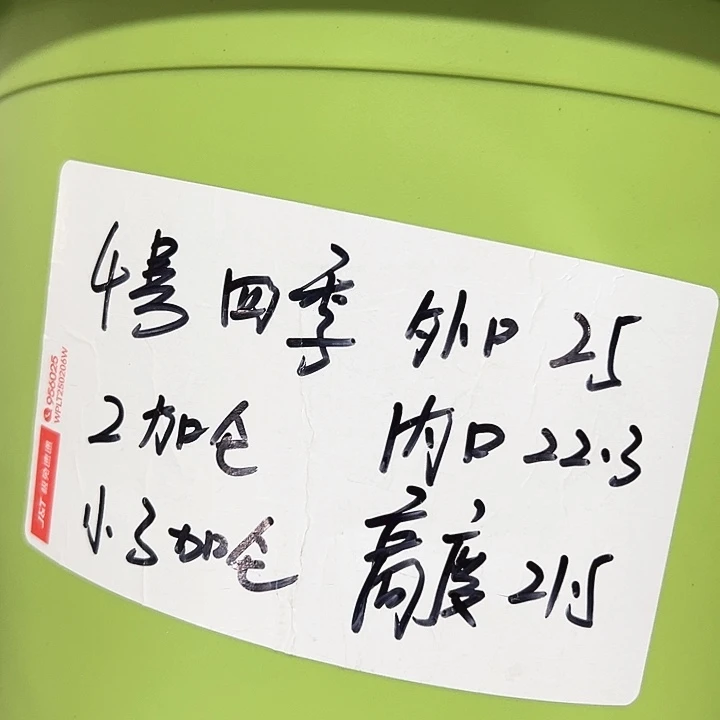 4号 四季 外口 25
2加仑 内口 22.3
小3加仑 高度 21.5
956025
WPLT250206W
J&T 极兔速递